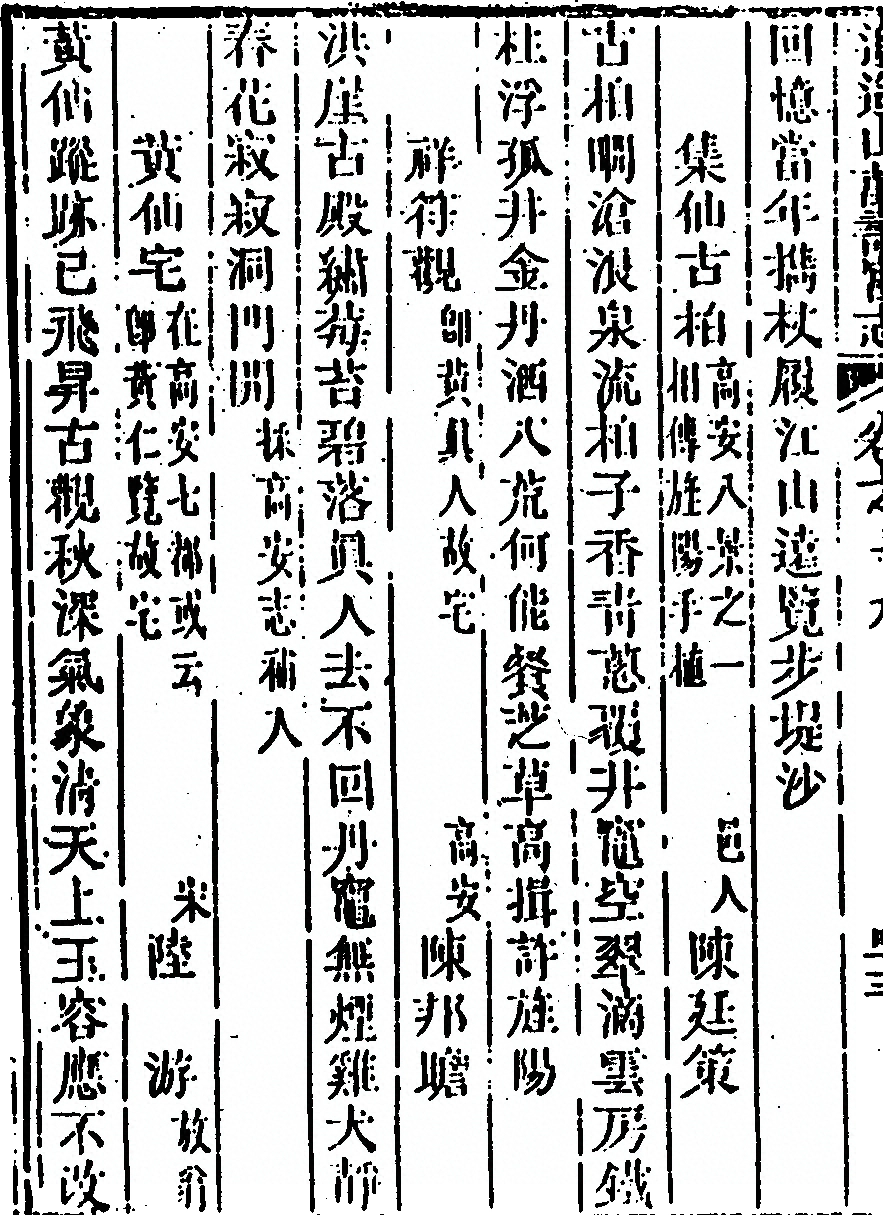 逍遙山萬壽宮志 卷之十九 四三
回憶當年攜杖履江山遠覽步堤沙
集仙古柏 高安八景之一相傳旌陽手植 邑人陳廷策
古柏凋滄浪泉流柏子香青蔥覆井竈空翠滴雲房鐵
柱浮孤井金丹洒八荒何能餐芝草高揖許旌陽
祥符觀 卽黃真人故宅 高安陳邦瞻
洪崖古殿繡莓苔碧落真人去不回丹竈無煙雞犬靜
春花寂寂洞門開 採高安志補入
黃仙宅 在高安七都或云卽黃仁覽故宅 宋陸游 放翁
黃仙蹤跡已飛昇古觀秋深氣象清天上玉容應不改